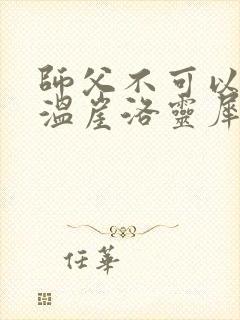 師父不可以
溫崖洛靈犀
任華